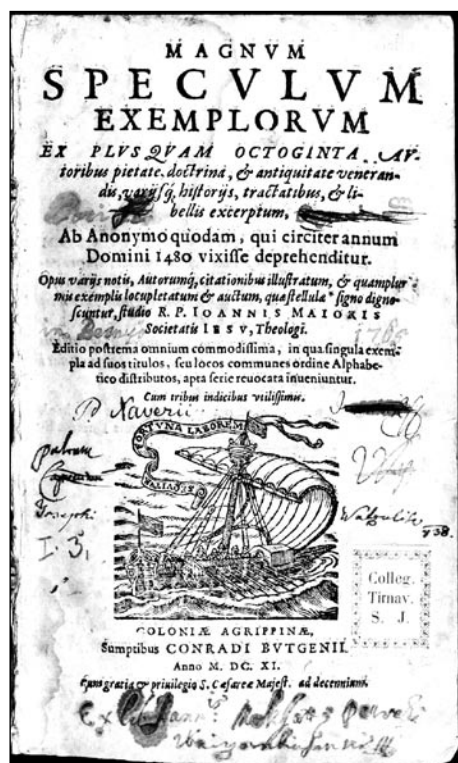 MAGNVM
SPECVLVM
EXEMPLORVM
EX PLVSQVAM OCTOGINTA AV-
toribus pietate, doctrina, & antiquitate veneran-
dis, varijsq́; historijs, tractatibus, & li-
bellis excerptum,
Ab Anonymo quodam, qui circiter annum
Domini 1480 vixisse deprehenditur.
Opus varijs notis, Autorumq́; citationibus illustratum, & quampluri-
mis exemplis locupletatum & auctum, quæ stellulæ * signo digno-
scuntur, studio R. P. IOANNIS MAIORIS
Societatis IESV, Theologi.
Editio postrema omnium commodissima, in qua singula exem-
pla ad suos titulos, seu locos communes ordine Alphabe-
tico distributos, apta serie reuocata inueniuntur.
Cum tribus indicibus vtilissimis.
P Xaverii
FORTVNA LABOREM
Josephi
738.
Colleg.
Tirnav.
S. J.
COLONIÆ AGRIPPINÆ,
Sumptibus CONRADI BVTGENII.
Anno M. DC. XI.
Cum gratia & priuilegio S. Cæsareæ Majest. ad decennium.